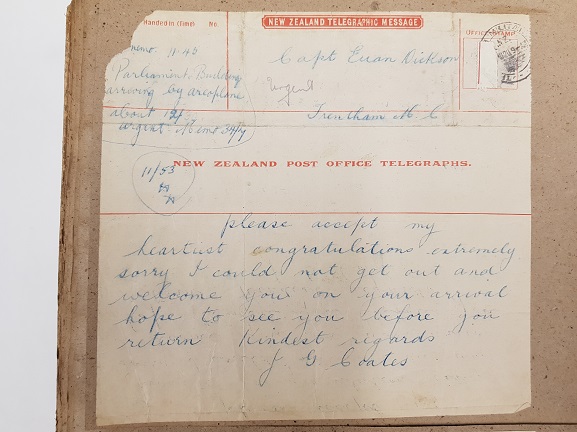 Handed in (Time) No.
NEW ZEALAND TELEGRAPHIC MESSAGE
OFFICE STAMP
memo. 11-45
Parliament Building
arriving by aeroplane
about 12
urgent
Capt Euan Dickson
Urgent
Trentham M. C
11/53
NEW ZEALAND POST OFFICE TELEGRAPHS.
please accept my
heartiest congratulations extremely
sorry I could not get out and
welcome you on your arrival
hope to see you before you
return Kindest regards
J G Coates